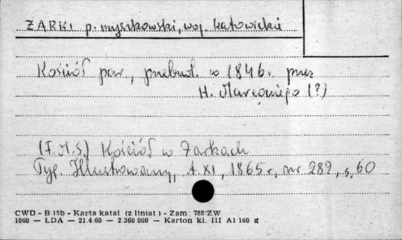 ŻARKI p. myszkowski, woj. katowickie
Kościół par., przebud. w 1846. przez
H. Marconiego (?)
(F.M.S.) Kościół w Żarkach
Tyg. Illustrowany, t. XI, 1865 r, nr 282, s. 60
CWD - B 15b - Karta katal (z liniat) - Zam 788 ZW
1060 — LDA — 21.4.60 — 2.360.000 — Karton kl. III A1 160 g